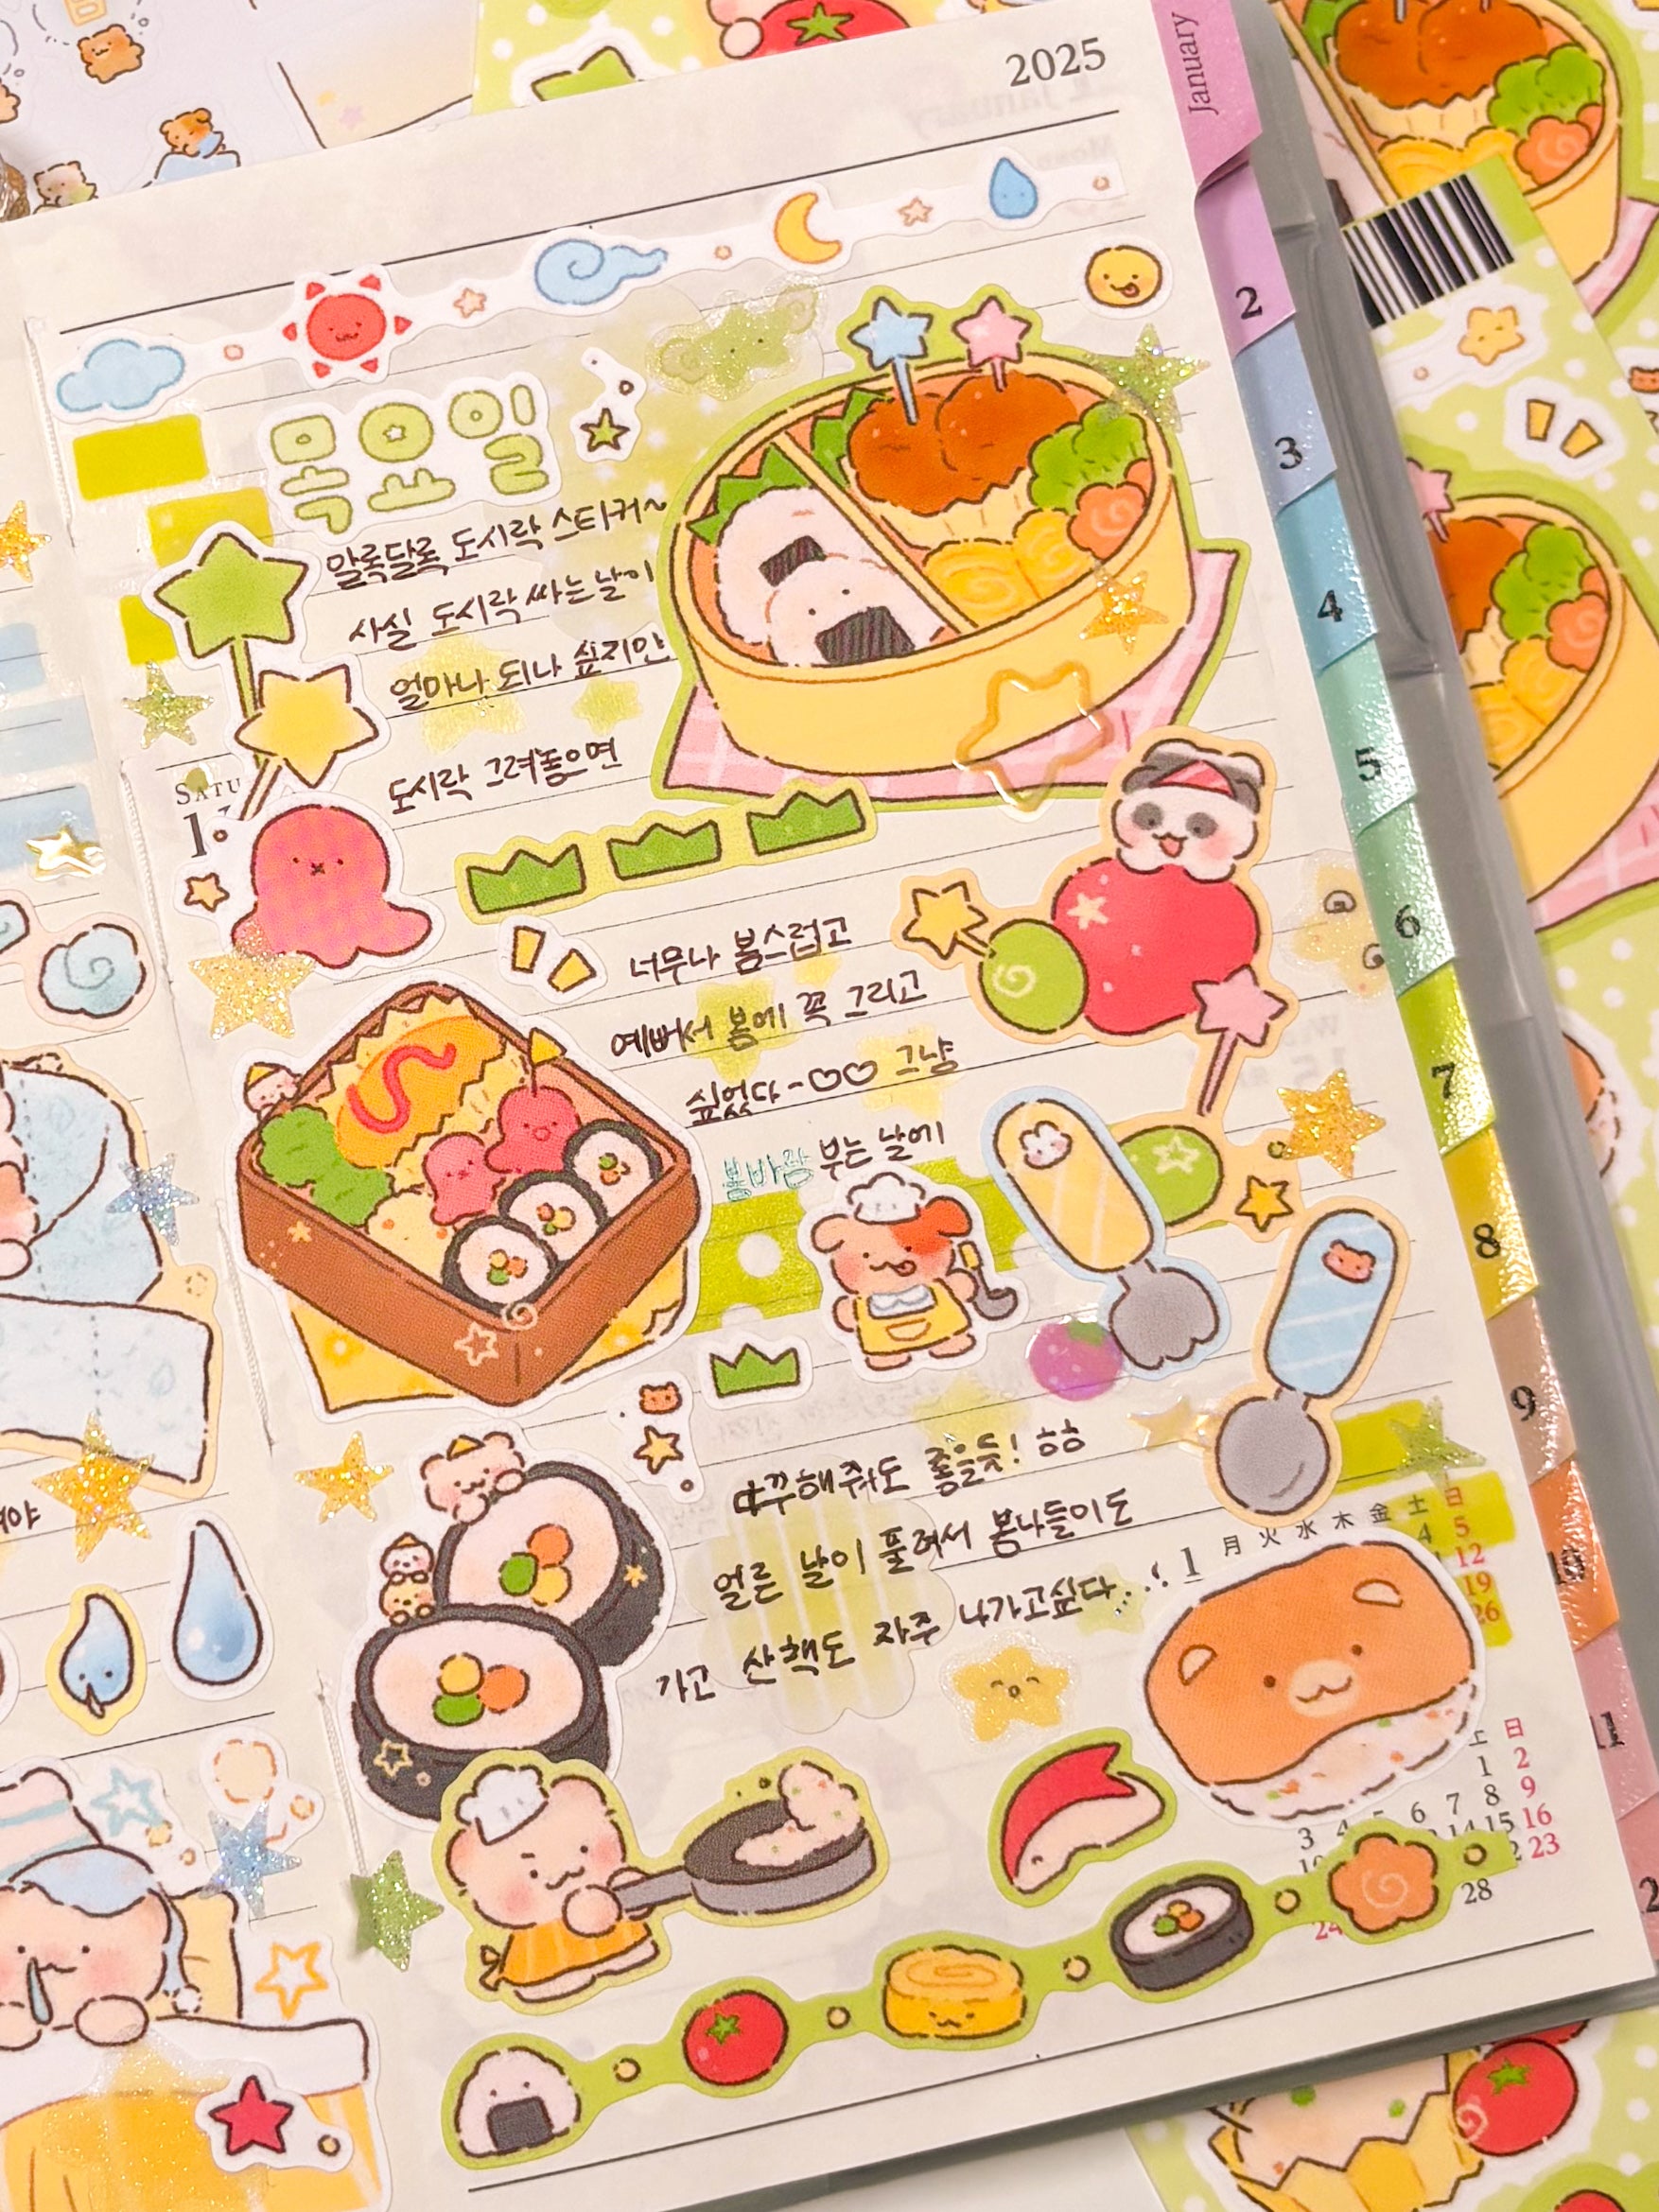 2025
January
목요일
알록달록 도시락 스티커~
사실 도시락 싸는 날이
얼마나 되나 싶지만
도시락 그려놓으면
SATU
1
너무나 봄스럽고
예뻐서 봄에 꼭 그리고
싶었다-♡♡ 그냥
봄바람 부는 날에
다꾸해줘도 좋을듯! ㅎㅎ
얼른 날이 풀려서 봄나들이도
가고 산책도 자주 나가고싶다..!
1 月 火 水 木 金 土 日
4 5
12
19
26
土 日
1 2
3 4 5 6 7 8 9
14 15 16
23
24 28
2
3
4
5
6
7
8
9
10
11